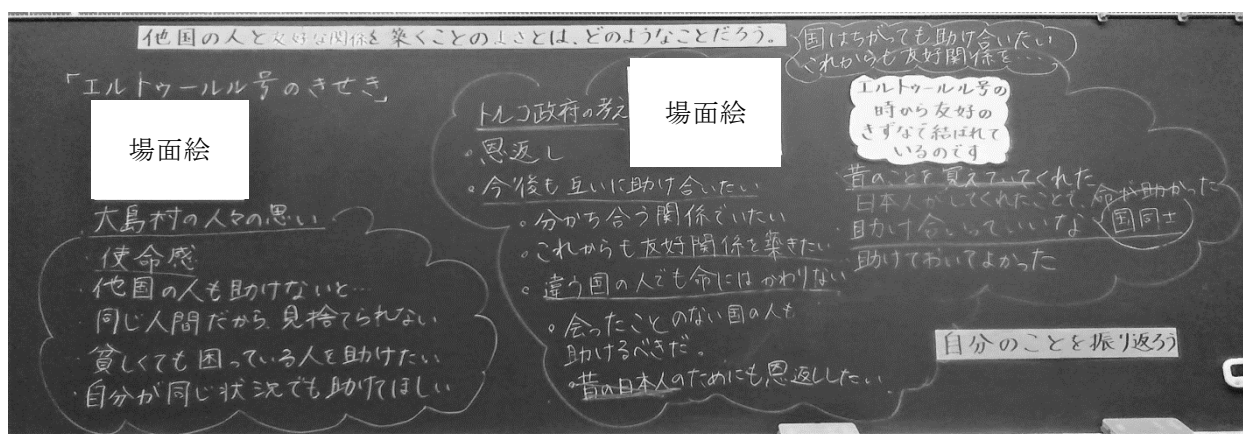 他国の人と友好な関係を築くことのよさとは、どのようなことだろう。
「エルトゥールル号のきせき」
場面絵
大島村の人々の思い
使命感
・他国の人も助けないと…
・同じ人間だから、見捨てられない
・貧しくても困っている人を助けたい
・自分が同じ状況でも助けてほしい
トルコ政府の考え
場面絵
・恩返し
・今後も互いに助け合いたい
・分かち合う関係でいたい
・これからも友好関係を築きたい
・違う国の人でも命にはかわりない
・会ったことのない国の人も
助けるべきだ。
・昔の日本人のためにも恩返ししたい
国はちがっても助け合いたい
これからも友好関係を…
エルトゥールル号の
時から友好の
きずなで結ばれて
いるのです
昔のことを覚えていてくれた
日本人がしてくれたことで、命が助かった
助け合いっていいな
国同士
助けておいてよかった
自分のことを振り返ろう